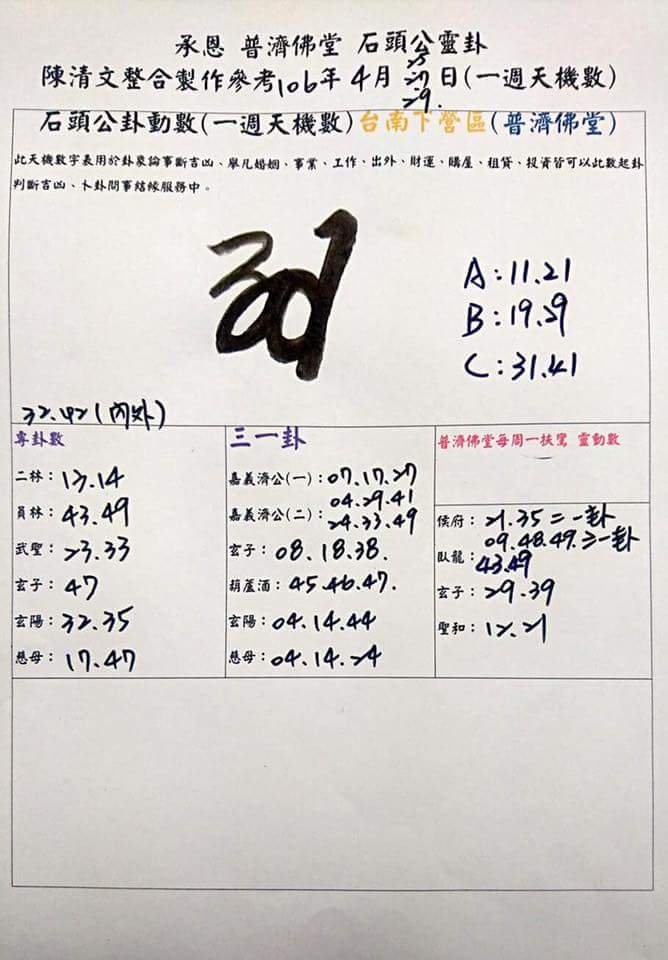 承恩 普濟佛堂 石頭公靈卦
陳清文整合製作參考106年4月25.27.29.日(一週天機數)
石頭公卦動數(一週天機數)台南下營區(普濟佛堂)
此天機數字表用於卦象論事斷吉凶、舉凡婚姻、事業、工作、出外、財運、購屋、租貸、投資皆可以此數起卦
判斷吉凶、卜卦問事結緣服務中。
A:11.21
B:19.29
C:31.41
32.42(內外)
專卦數
二林:13.14
員林:43.49
武聖:23.33
玄子:47
玄陽:32.35
慈母:17.47
三一卦
嘉義濟公(一):07.17.27
嘉義濟公(二):04.29.41
24.33.49
玄子:08.18.38.
葫蘆酒:45.46.47.
玄陽:04.14.44
慈母:04.14.24
普濟佛堂每周一扶鸞 靈動數
侯府:21.35=一卦
臥龍:09.48.49.三一卦
43.49
玄子:29.39
聖和:12.21